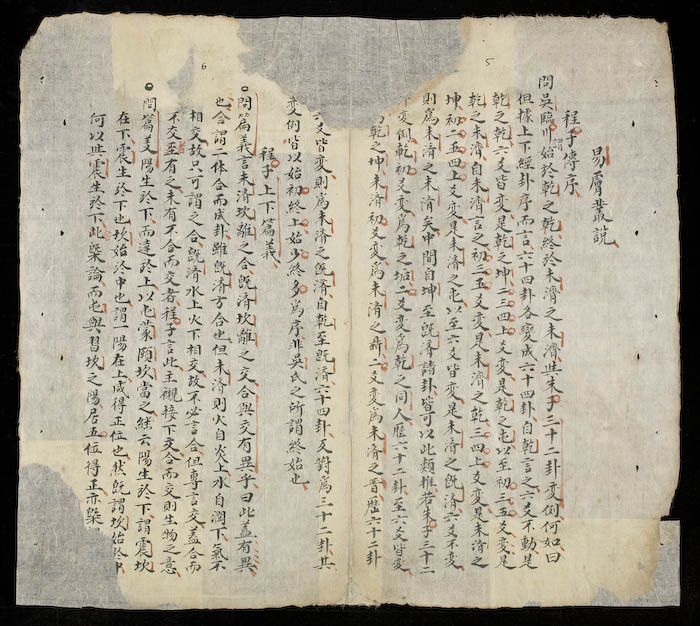 5
易膺叢說
程子傳序
問吳臨川始於乾之乾終於未濟之未濟與朱子三十二卦變例何如曰
但據上下經卦序而言六十四卦各變成六十四卦自乾言之六爻不動是
乾之乾六爻皆變是乾之坤二三四上爻變是乾之屯以至初三五爻變是
乾之未濟自未濟言之初三五爻變是未濟之乾二四上爻變是未濟之
坤初二五四上爻變是未濟之屯以至六爻皆變是未濟之既濟六爻不變
則爲未濟之未濟矣中間自坤至既濟諸卦皆可以此類推若朱子三十二
變例乾初爻變爲乾之姤二爻變爲乾之同人歷六十二卦至六爻皆變
乾之坤未濟初爻變爲未濟之睽二爻變爲未濟之晉歷六十二卦
六爻皆變則爲未濟之既濟自乾至既濟六十四卦反對爲三十二卦其
變例皆以始初終上始少終多爲序非吳氏之所謂終始也
6
程子上下篇義
問篇義言未濟坎離之合既濟坎離之交合與交有異乎曰此蓋有異
也合謂二体合而成卦雖既濟方合也但未濟則火自炎上水自潤下氣不
相交故只可謂之合既濟水上火下相交故不必言合但專言交蓋合而
不交至有之未有不合而交者程子言此主襯接下交合而交則生物之意
問篇義陽生於下而達於上以屯蒙頤坎當之継云陽生於下謂震坎
在下震生於下也坎始於中也謂一陽在上咸得正位也然既謂坎始於中
何以與震生於下此槩論而屯與習坎之陽居五位得正亦槩